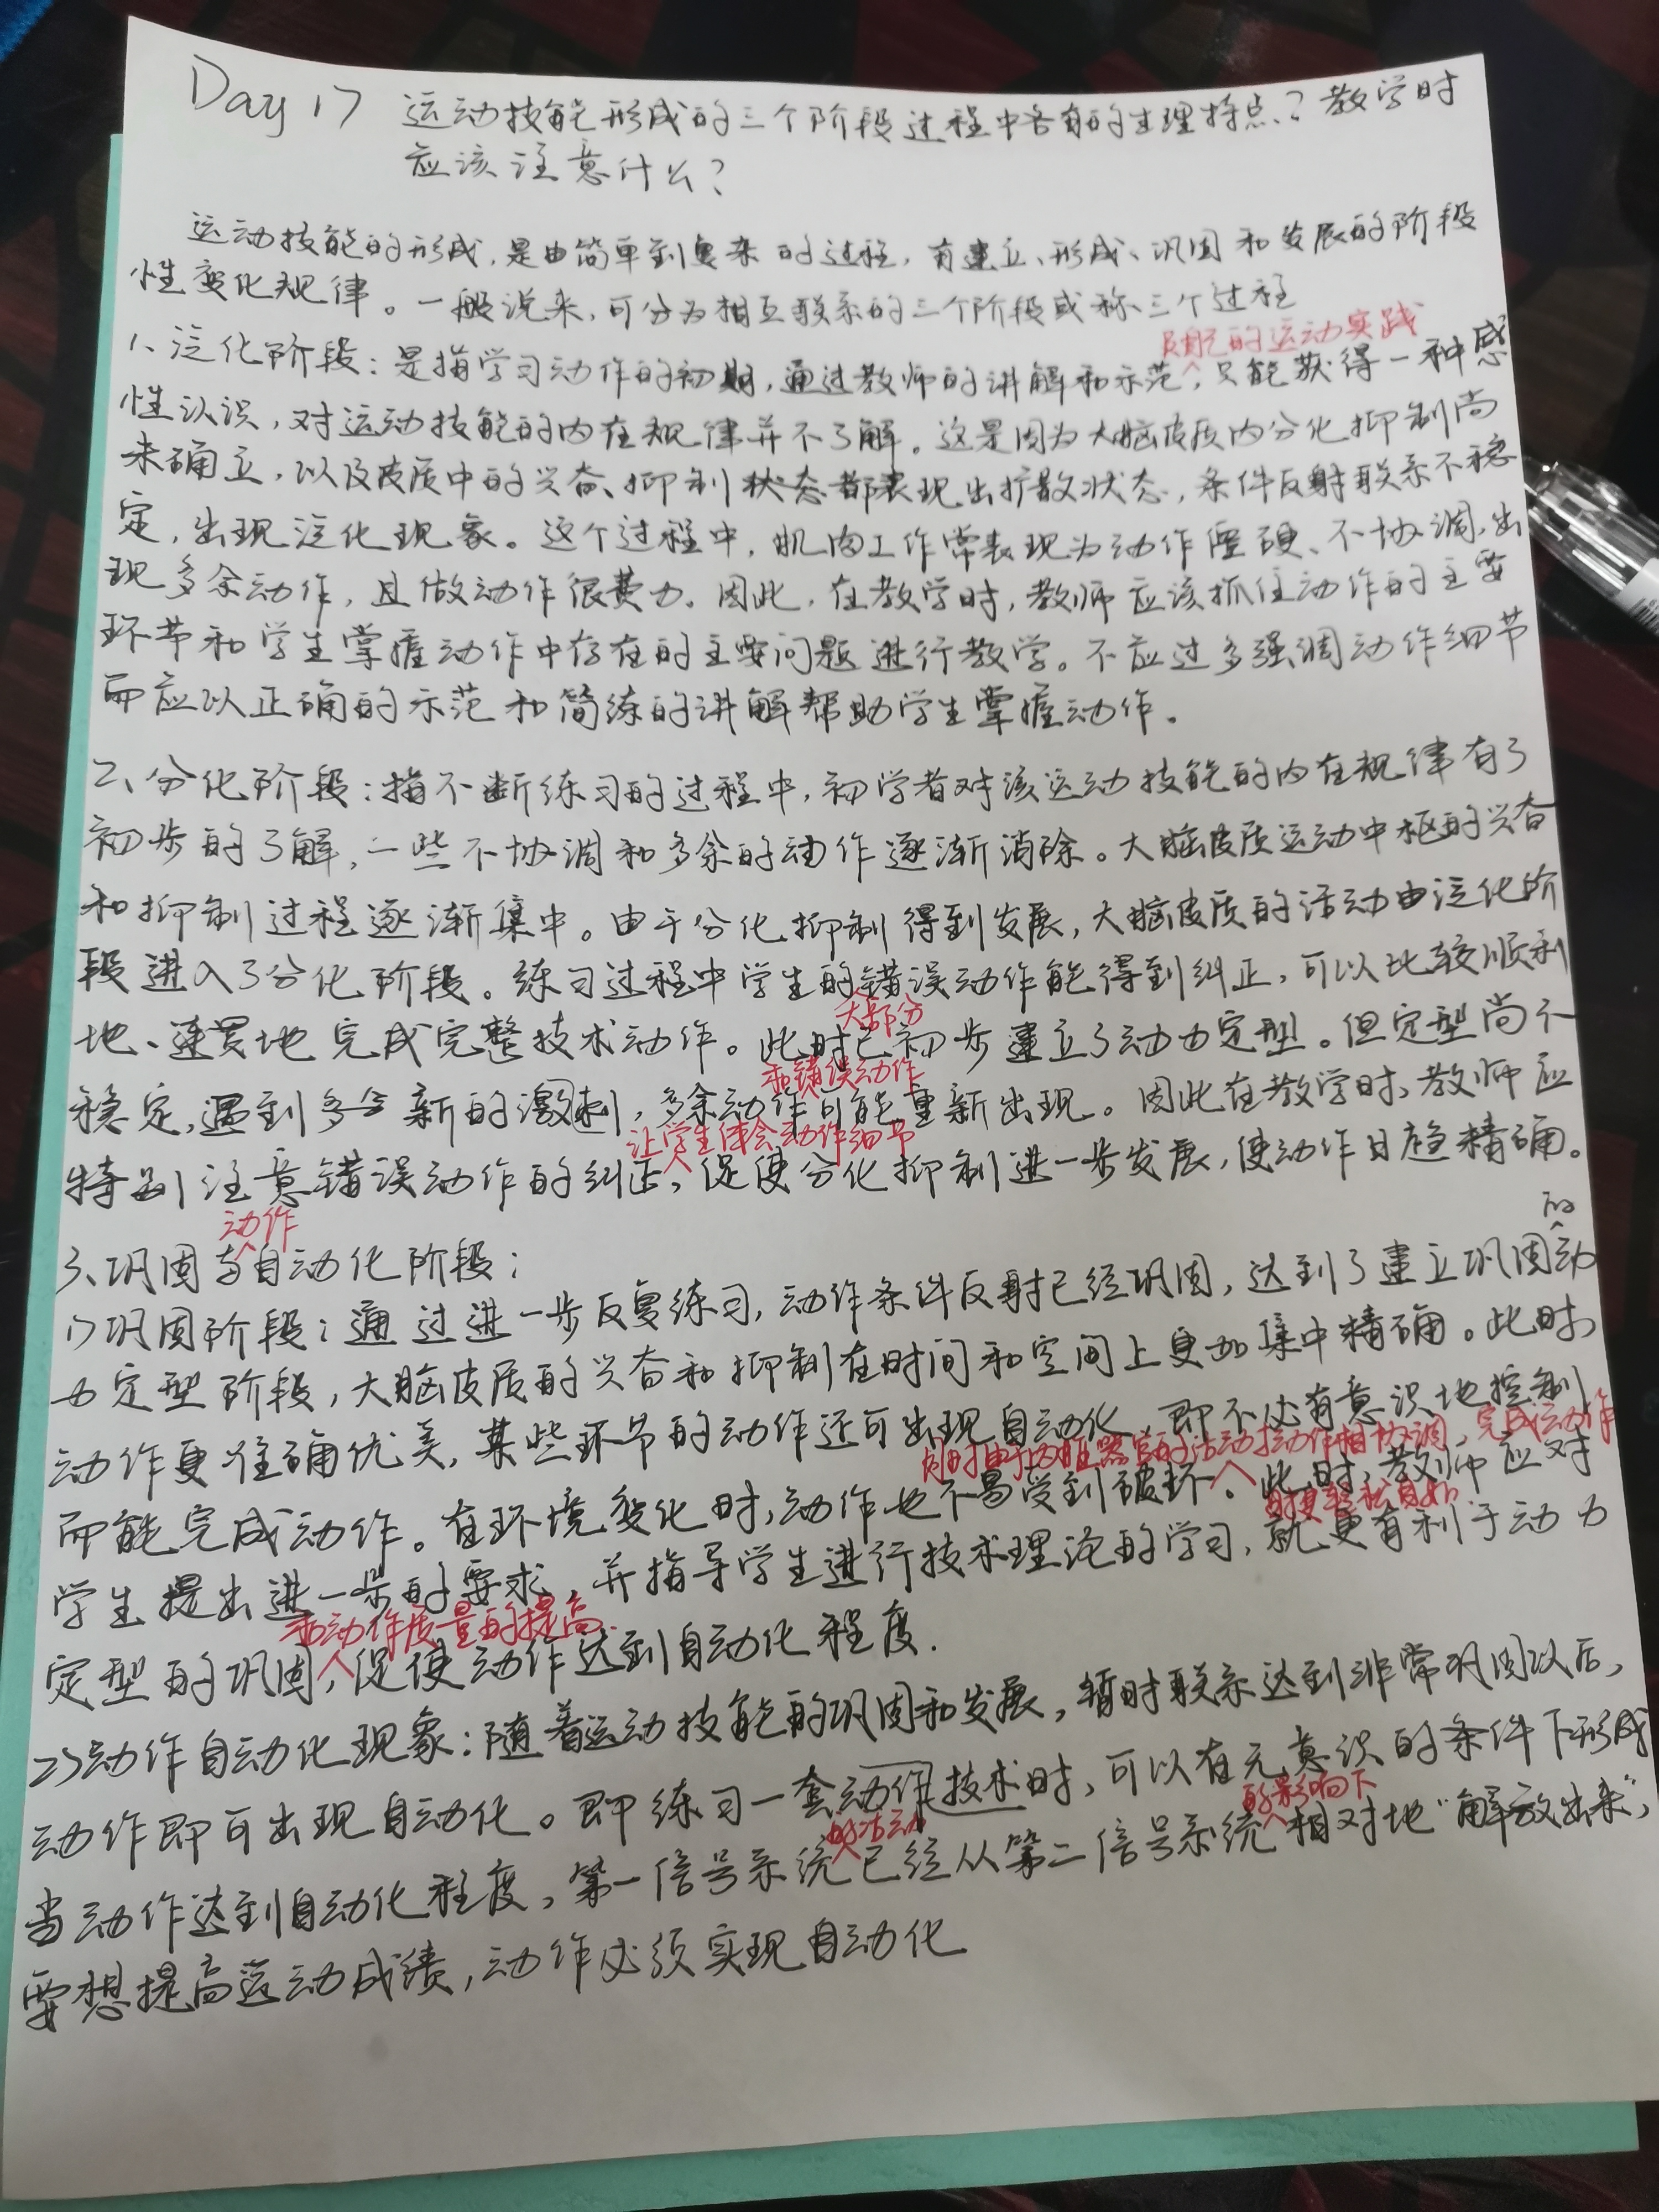 Day 17 运动技能形成的三个阶段过程中各有的生理特点？教学时
应该注意什么？
运动技能的形成，是由简单到复杂的过程，有建立、形成、巩固和发展的阶段
性变化规律。一般说来，可分为相互联系的三个阶段或称三个过程
及自己的运动实践
1、泛化阶段：是指学习动作的初期，通过教师的讲解和示范，只能获得一种感
性认识，对运动技能的内在规律并不了解。这是因为大脑皮质内分化抑制尚
未确立，以及皮质中的兴奋、抑制状态都表现出扩散状态，条件反射联系不稳
定，出现泛化现象。这个过程中，肌肉工作常表现为动作僵硬、不协调，出
现多余动作，且做动作很费力。因此，在教学时，教师应该抓住动作的主要
环节和学生掌握动作中存在的主要问题进行教学。不应过多强调动作细节
而应以正确的示范和简练的讲解帮助学生掌握动作。
2、分化阶段：指不断练习的过程中，初学者对该运动技能的内在规律有了
初步的了解，一些不协调和多余的动作逐渐消除。大脑皮质运动中枢的兴奋
和抑制过程逐渐集中。由于分化抑制得到发展，大脑皮质的活动由泛化阶
段进入了分化阶段。练习过程中学生的错误动作能得到纠正，可以比较顺利
大部分
地、连贯地完成完整技术动作。此时已初步建立了动力定型。但定型尚不
和错误动作
稳定，遇到多余新的激刺，多余动作可能重新出现。因此在教学时，教师应
让学生体会动作细节
特别注意错误动作的纠正，促使分化抑制进一步发展，使动作日趋精确。
动作
3、巩固与自动化阶段：
的
1）巩固阶段：通过进一步反复练习，动作条件反射已经巩固，达到了建立巩固动
力定型阶段，大脑皮质的兴奋和抑制在时间和空间上更加集中精确。此时，
动作更准确优美，某些环节的动作还可出现自动化，即不必有意识地控制
同时由于内脏器官的活动与动作相协调，完成运动作
而能完成动作。在环境变化时，动作也不易受到破坏。此时，教师应对
时更轻松自如
学生提出进一步的要求，并指导学生进行技术理论的学习，就更有利于动力
和动作质量的提高
定型的巩固，促使动作达到自动化程度.
2）动作自动化现象：随着运动技能的巩固和发展，暂时联系达到非常巩固以后，
动作即可出现自动化。即练习一套动作技术时，可以在无意识的条件下形成
的活动
的影响下
当动作达到自动化程度，第一信号系统已经从第二信号系统相对地“解放出来”，
要想提高运动成绩，动作必须实现自动化